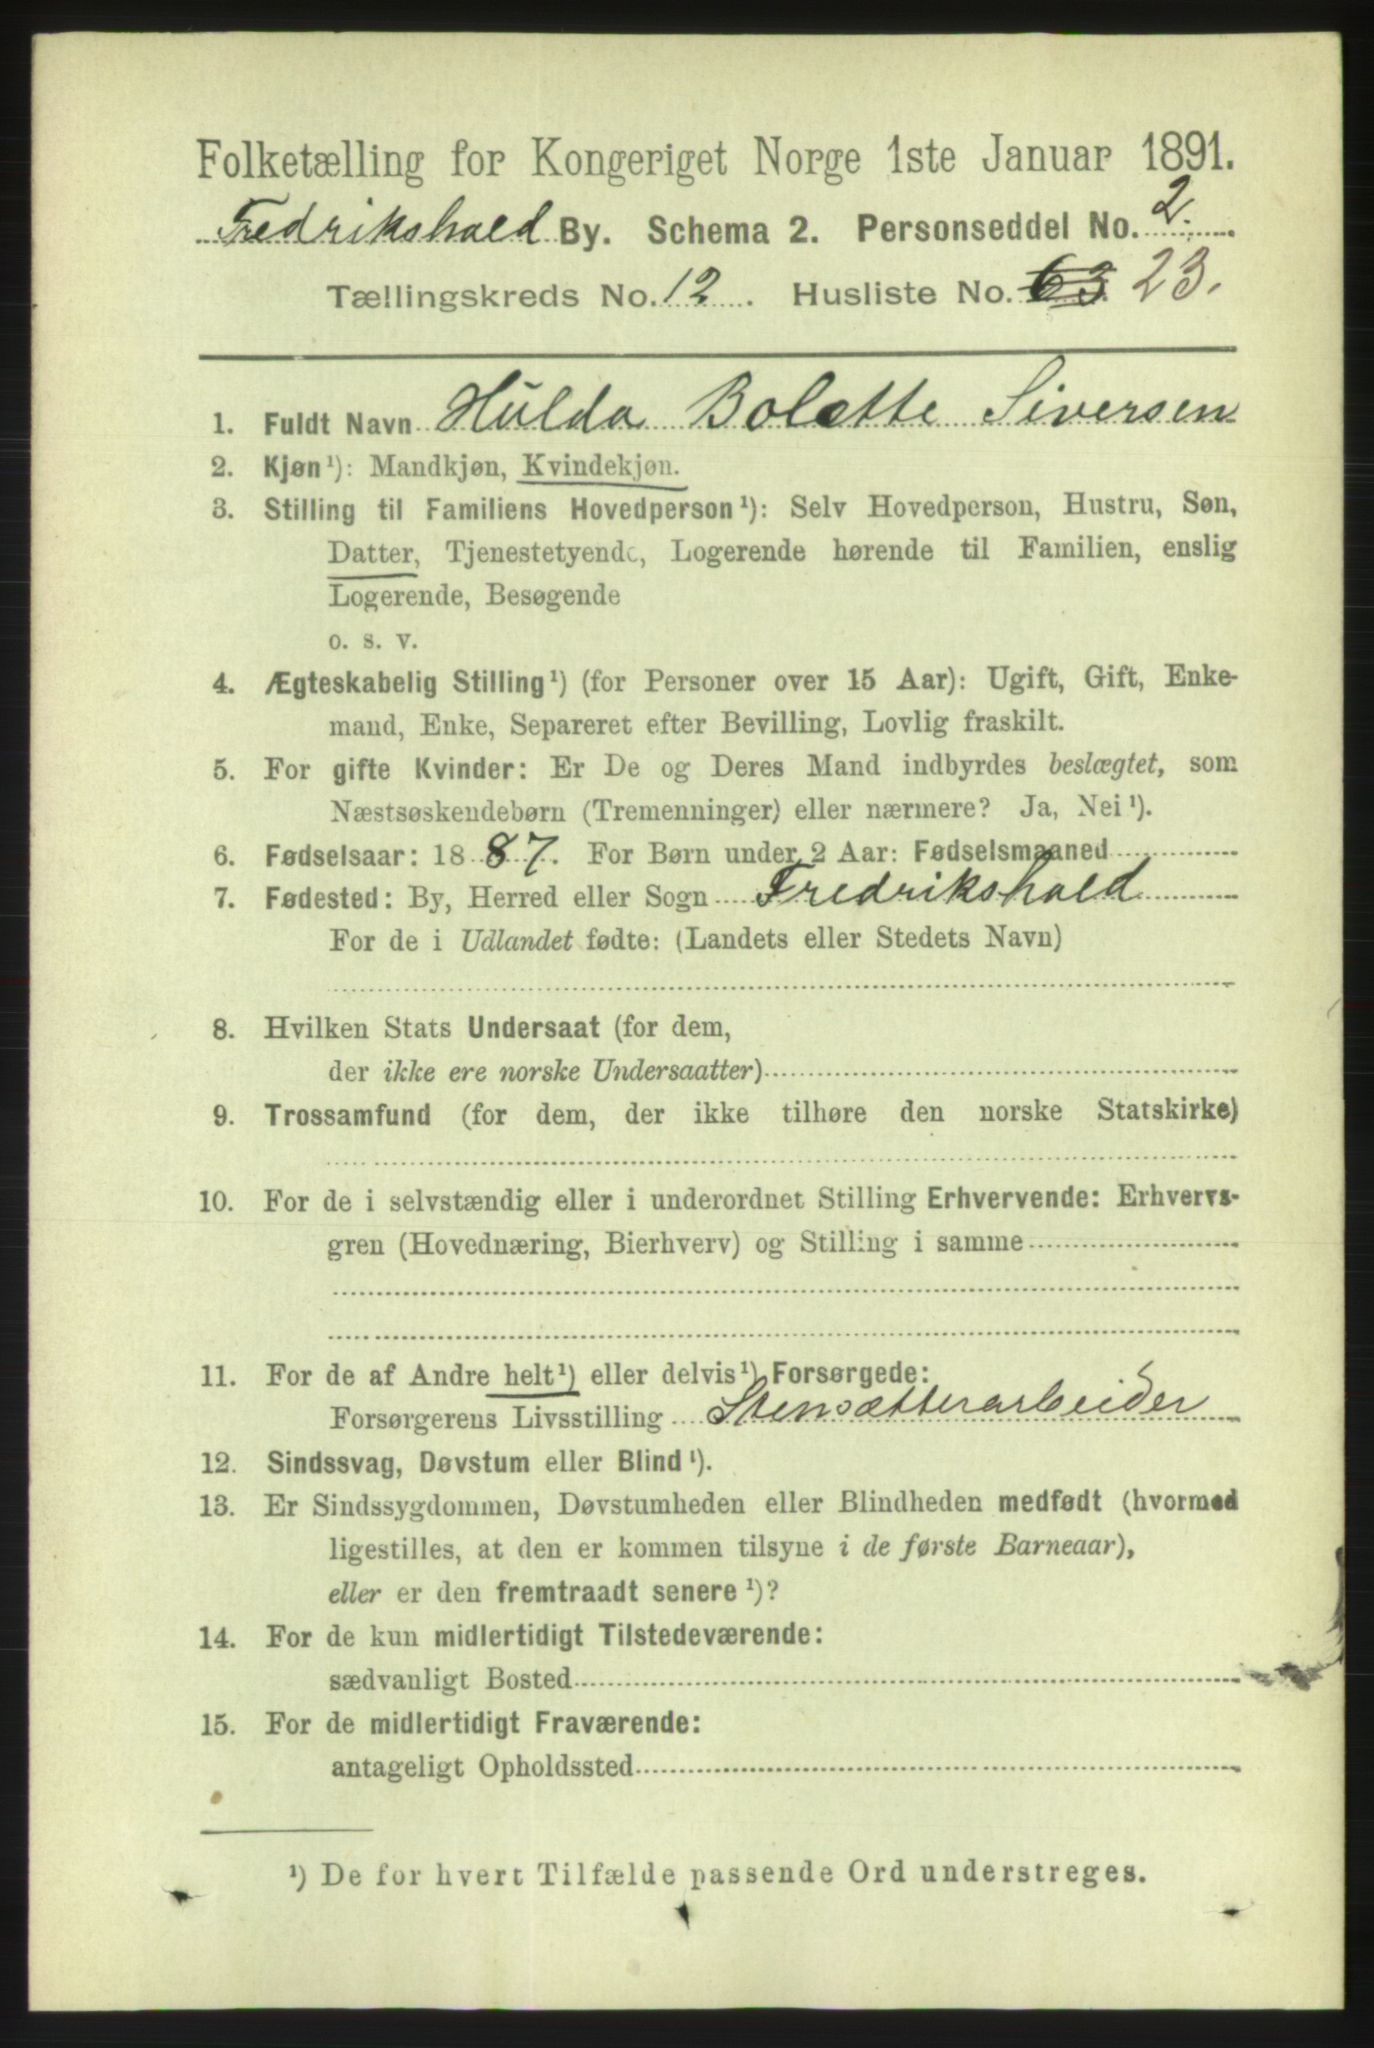 Folketælling for Kongeriget Norge 1ste Januar 1891.
Fredrikshald By. Schema 2. Personseddel No. 2.
Tællingskreds No. 12. Husliste No. 63 23.
1. Fuldt Navn Hulda Bolette Siversen
2. Kjøn¹): Mandkjøn, Kvindekjøn.
3. Stilling til Familiens Hovedperson¹): Selv Hovedperson, Hustru, Søn,
Datter, Tjenestetyende, Logerende hørende til Familien, enslig
Logerende, Besøgende
o. s. v.
4. Ægteskabelig Stilling¹) (for Personer over 15 Aar): Ugift, Gift, Enke-
mand, Enke, Separeret efter Bevilling, Lovlig fraskilt.
5. For gifte Kvinder: Er De og Deres Mand indbyrdes beslægtet, som
Næstsøskendebørn (Tremenninger) eller nærmere? Ja, Nei¹).
6. Fødselsaar: 1887. For Børn under 2 Aar: Fødselsmaaned
7. Fødested: By, Herred eller Sogn Fredrikshald
For de i Udlandet fødte: (Landets eller Stedets Navn)
8. Hvilken Stats Undersaat (for dem,
der ikke ere norske Undersaatter)
9. Trossamfund (for dem, der ikke tilhøre den norske Statskirke)
10. For de i selvstændig eller i underordnet Stilling Erhvervende: Erhvervs-
gren (Hovednæring, Bierhverv) og Stilling i samme
11. For de af Andre helt¹) eller delvis¹) Forsørgede:
Forsørgerens Livsstilling Stensætterarbeider
12. Sindssvag, Døvstum eller Blind¹).
13. Er Sindssygdommen, Døvstumheden eller Blindheden medfødt (hvormed
ligestilles, at den er kommen tilsyne i de første Barneaar),
eller er den fremtraadt senere¹)?
14. For de kun midlertidigt Tilstedeværende:
sædvanligt Bosted
15. For de midlertidigt Fraværende:
antageligt Opholdssted
¹) De for hvert Tilfælde passende Ord understreges.